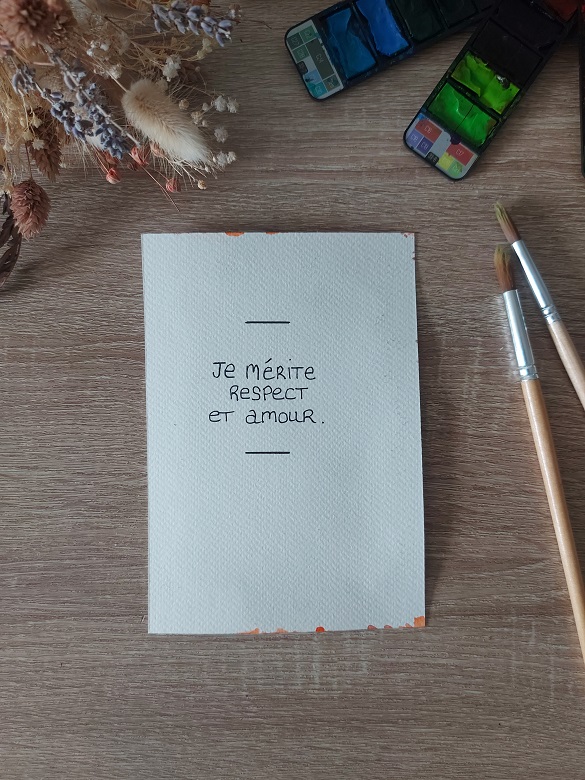 Je mérite
respect
et amour.